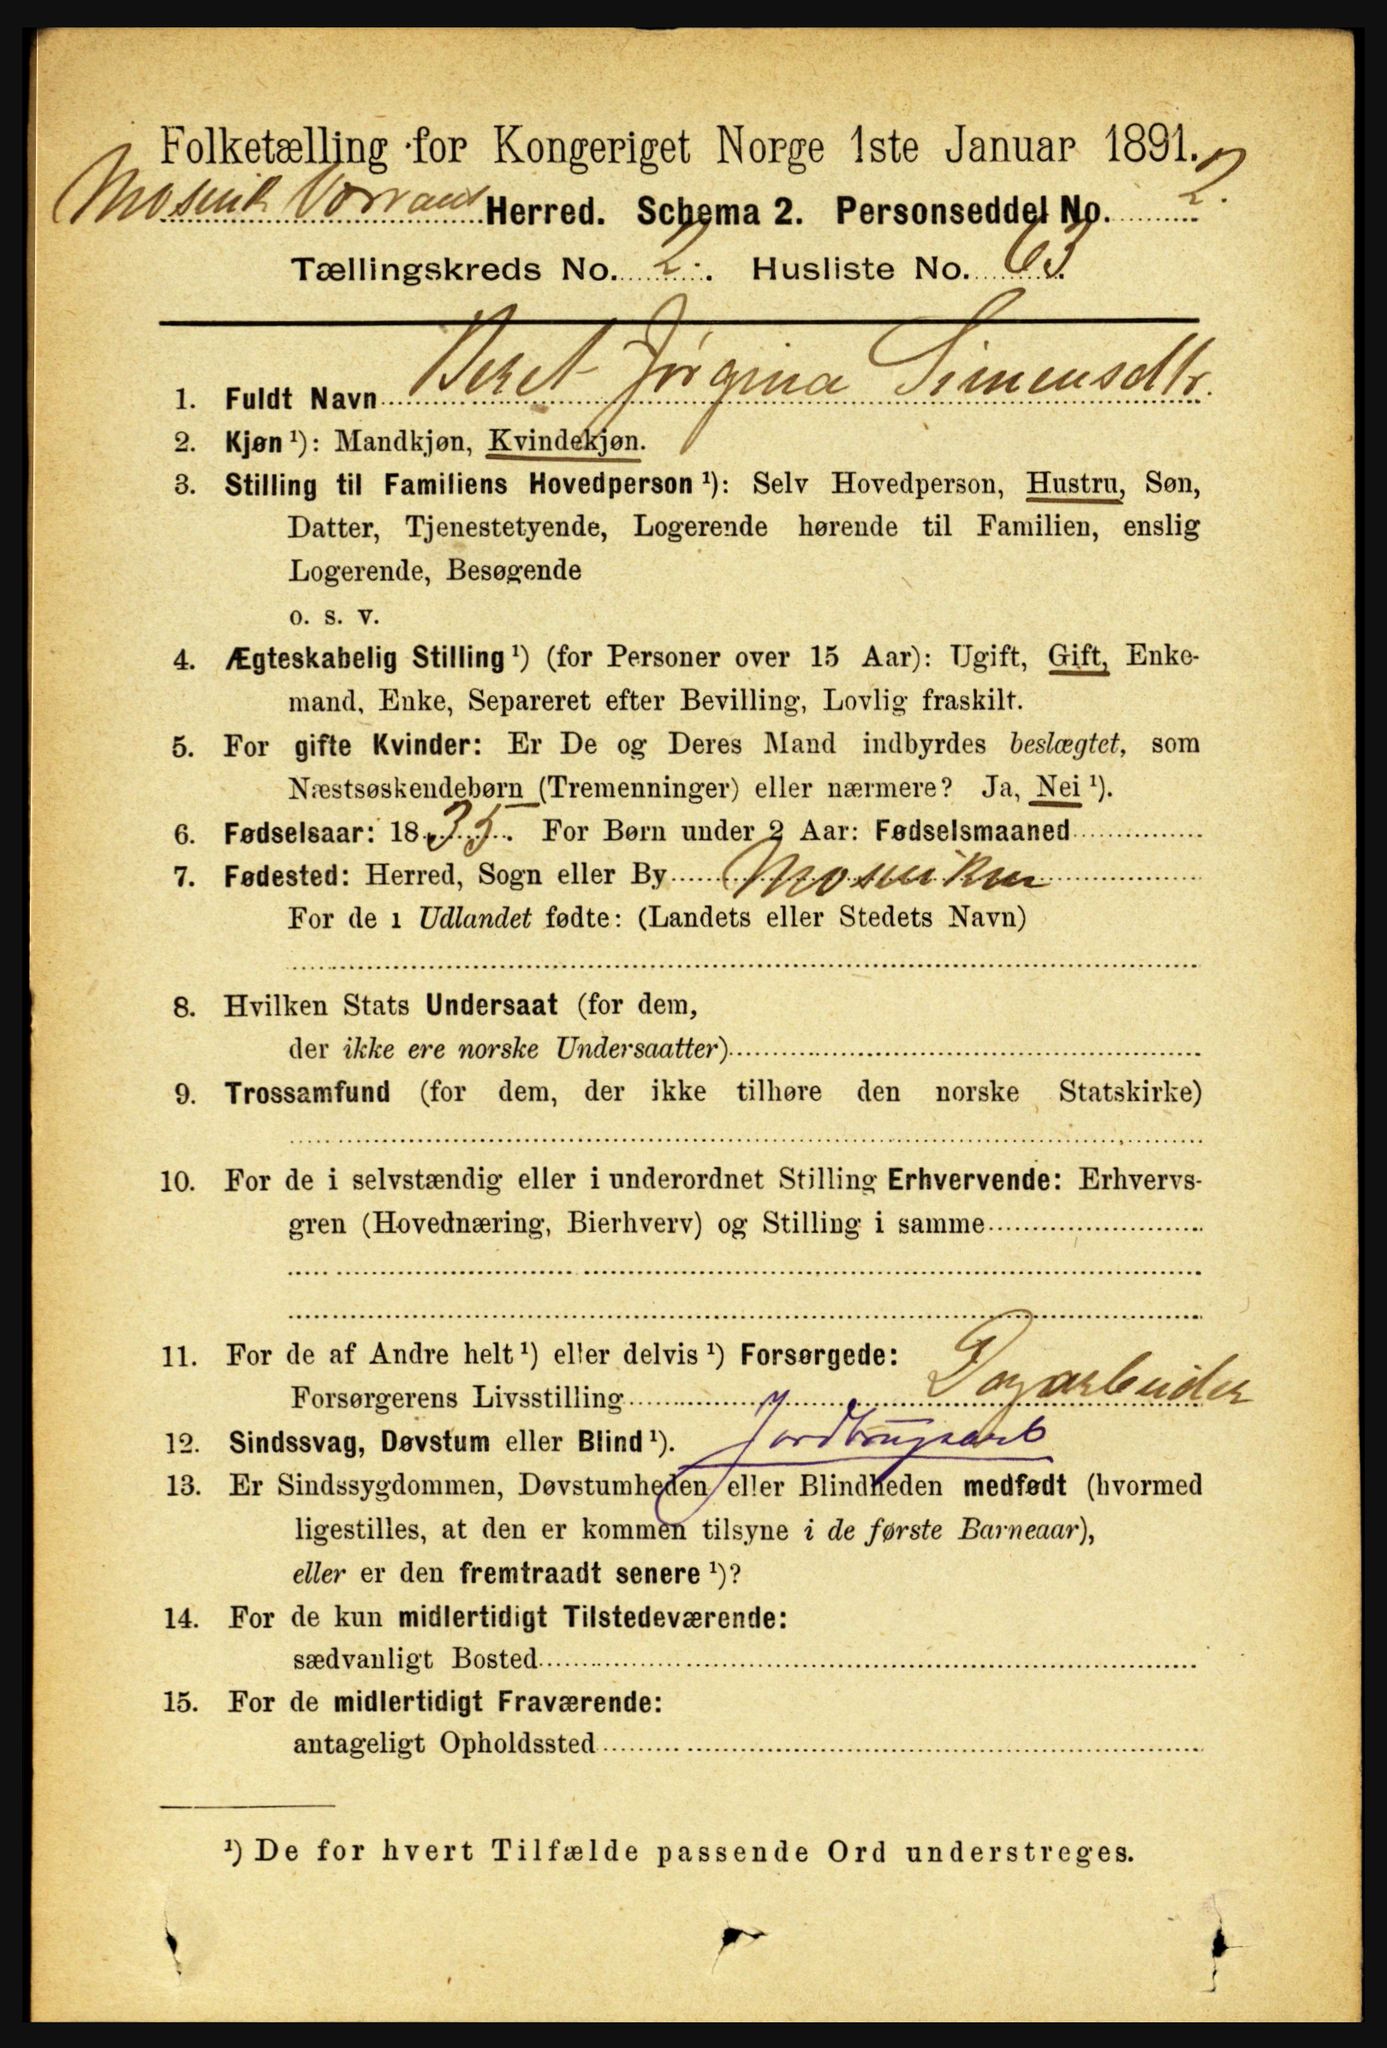 Folketælling for Kongeriget Norge 1ste Januar 1891.
Mosvik Verran Herred. Schema 2. Personseddel No. 2.
Tællingskreds No. 2. Husliste No. 63.
1. Fuldt Navn Beret Jørgina Simensdtr.
2. Kjøn ¹): Mandkjøn, Kvindekjøn.
3. Stilling til Familiens Hovedperson ¹): Selv Hovedperson, Hustru, Søn,
Datter, Tjenestetyende, Logerende hørende til Familien, enslig
Logerende, Besøgende
o. s. v.
4. Ægteskabelig Stilling ¹) (for Personer over 15 Aar): Ugift, Gift, Enke-
mand, Enke, Separeret efter Bevilling, Lovlig fraskilt.
5. For gifte Kvinder: Er De og Deres Mand indbyrdes beslægtet, som
Næstsøskendebørn (Tremenninger) eller nærmere? Ja, Nei ¹).
6. Fødselsaar: 1835. For Børn under 2 Aar: Fødselsmaaned
7. Fødested: Herred, Sogn eller By Mosviken
For de i Udlandet fødte: (Landets eller Stedets Navn)
8. Hvilken Stats Undersaat (for dem,
der ikke ere norske Undersaatter)
9. Trossamfund (for dem, der ikke tilhøre den norske Statskirke)
10. For de i selvstændig eller i underordnet Stilling Erhvervende: Erhvervs-
gren (Hovednæring, Bierhverv) og Stilling i samme
11. For de af Andre helt ¹) eller delvis ¹) Forsørgede:
Forsørgerens Livsstilling Dagarbeider
12. Sindssvag, Døvstum eller Blind ¹). Jordbrugsarb
13. Er Sindssygdommen, Døvstumheden eller Blindheden medfødt (hvormed
ligestilles, at den er kommen tilsyne i de første Barneaar),
eller er den fremtraadt senere ¹)?
14. For de kun midlertidigt Tilstedeværende:
sædvanligt Bosted
15. For de midlertidigt Fraværende:
antageligt Opholdssted
¹) De for hvert Tilfælde passende Ord understreges.